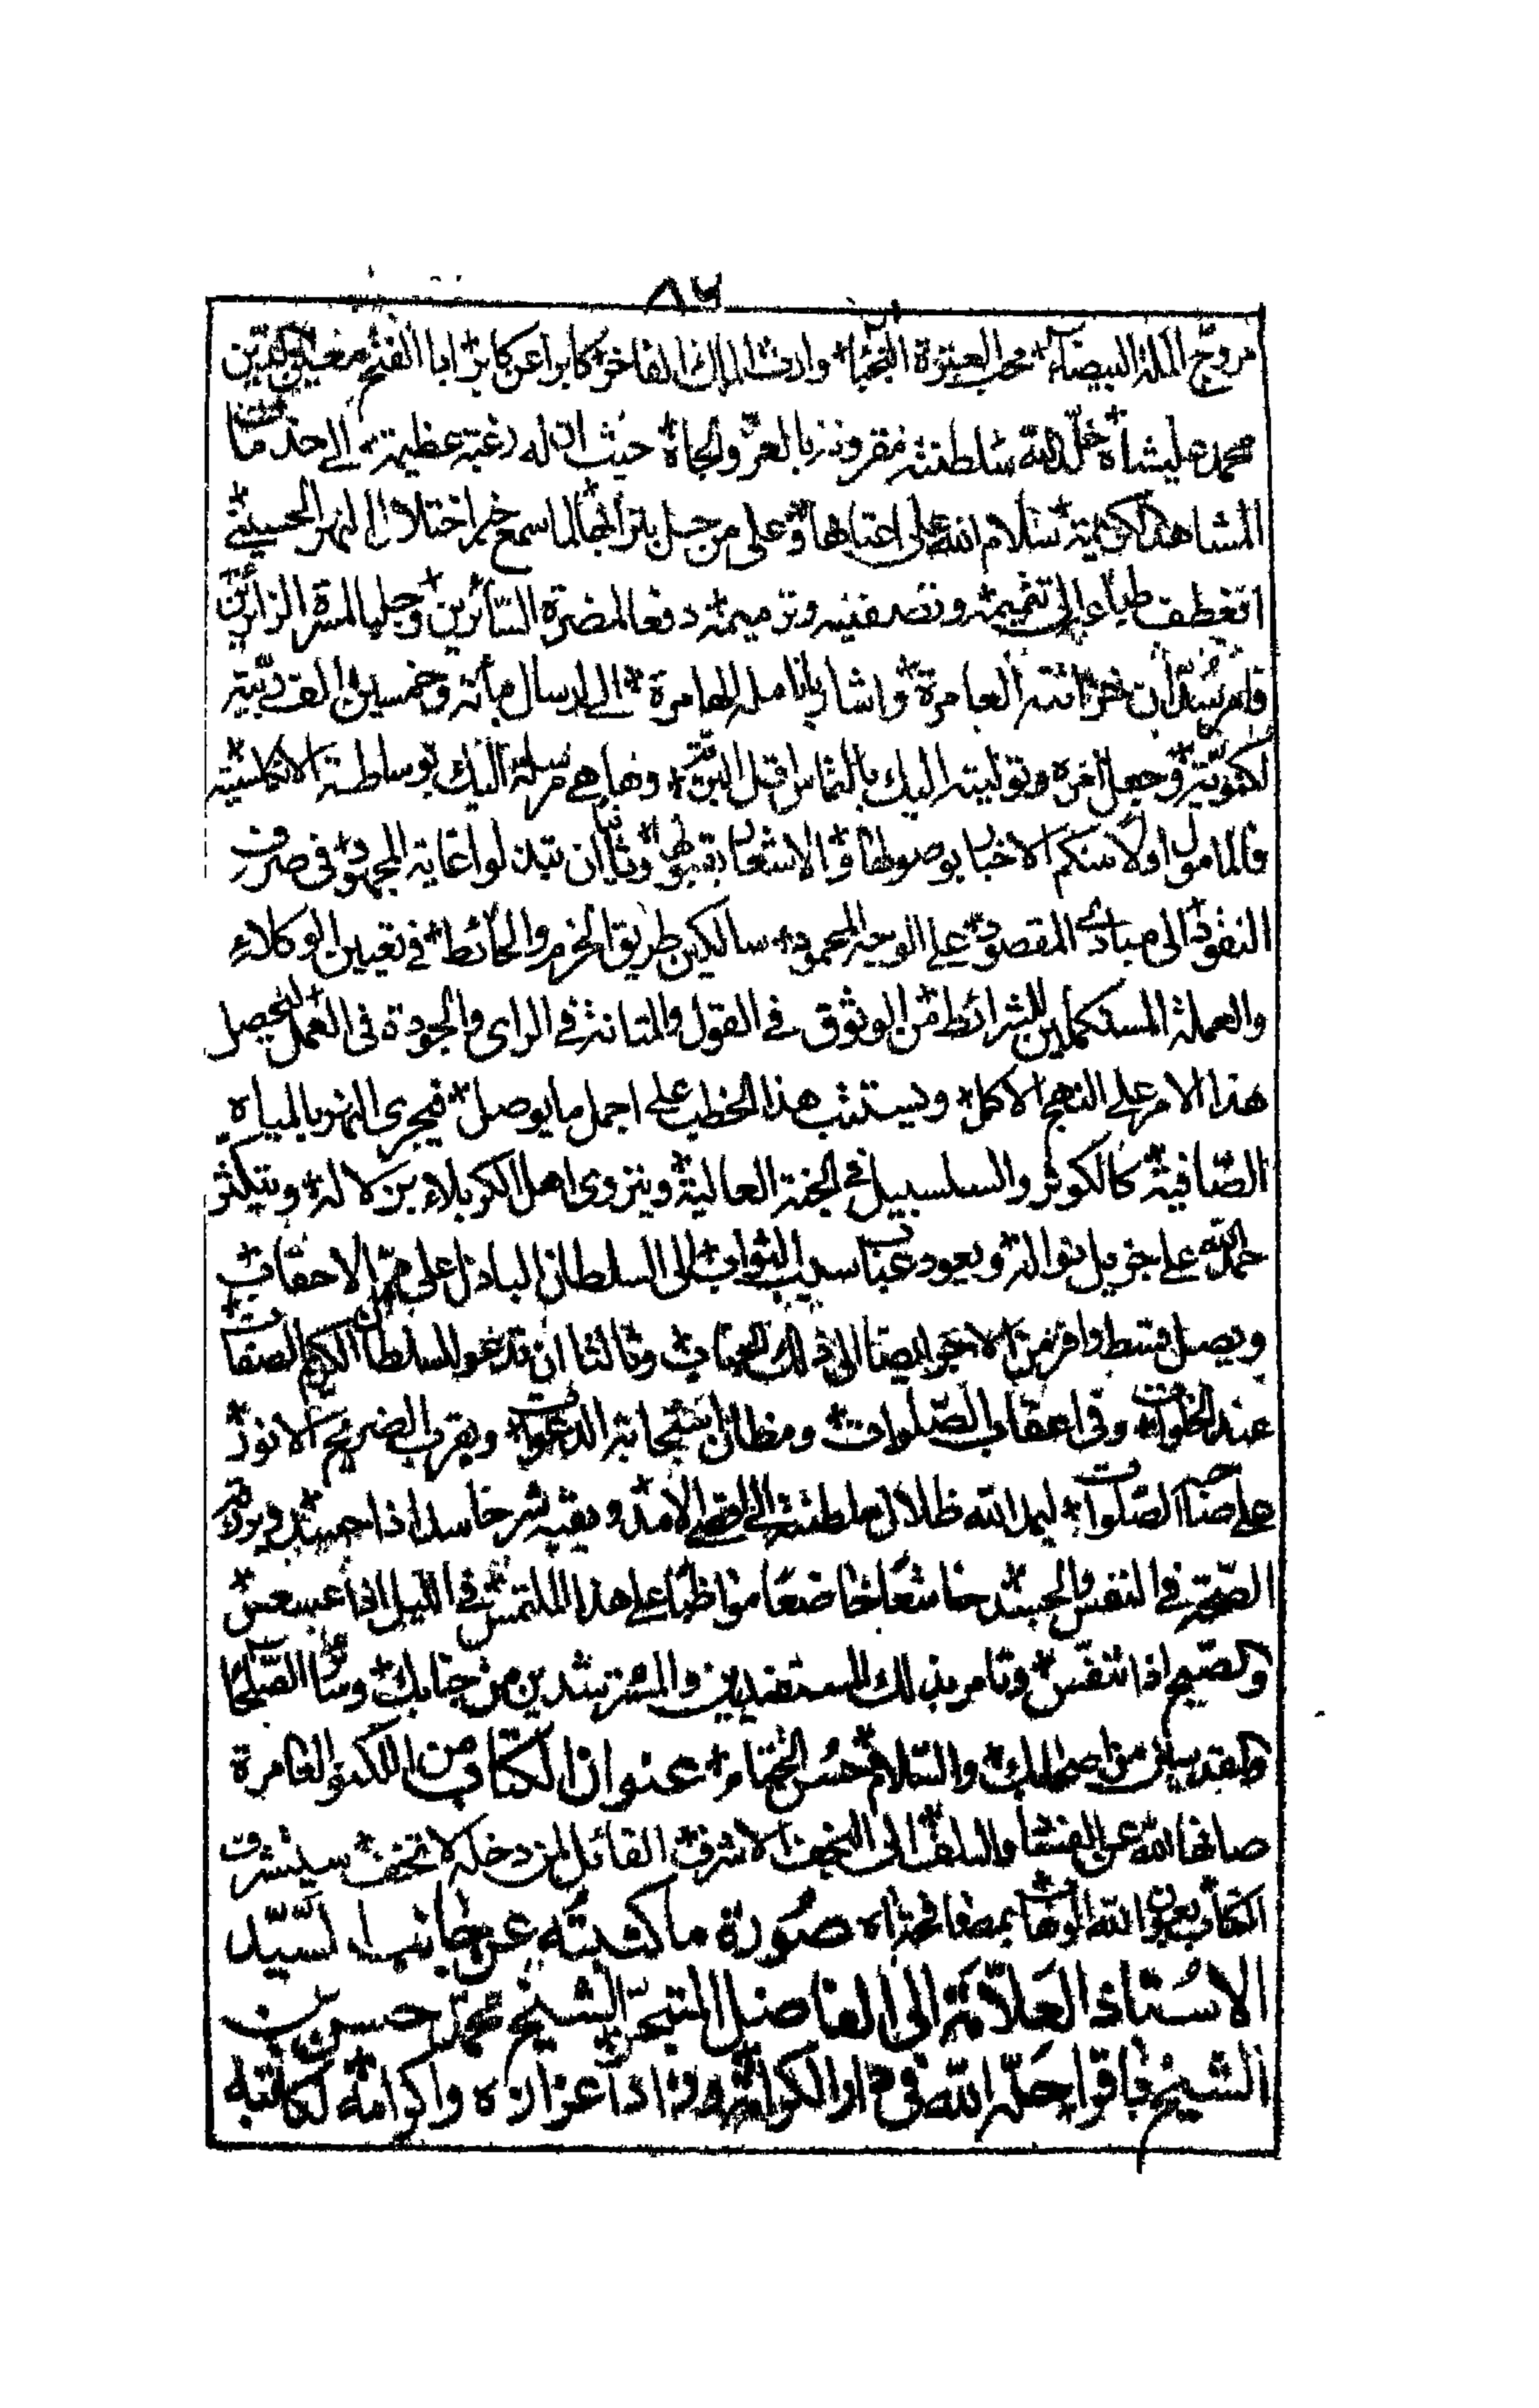 ٨٦
مروّج الملة البيضاء محب العترة النجباء وارث الملك الفاخر كابرا عن كابر ابا الفتح معين الدين
محمد عليشاه خلّد الله سلطنته مقرونة بالعزّ والجاه حيث ان له رغبة عظيمة الى خدمات
المشاهد الكريمة سلام الله على اعتابها وعلى من حل بترابها لما سمع خبر اختلال النهر الحسيني
انعطف طباعه الى تتميمه و ترميمه دفعا لمضرة السائرين وجلبا لمسرة الزائرين
فامر من خزانته العامرة واشار بانامله الهامرة الى ارسال مأته وخمسين الف ربية
لكنهوية وجعل امره وتوليته اليك بالتماس وها هي مرسلة اليك بوساطة الانكليشية
فالمامول اولا منكم الاخبار بوصولها والاشعار بقبولها وثانيا ان تبذلوا غاية المجهود فى صرف
النقود الى مبادى المقصود على الوجه المحمود سالكين طريق الحزم والحائطة في تعيين الوكلاء
والعملة المستكملين للشرائط من الوثوق في القول والمتانة في الراى والجودة فى العمل ليحصل
هذا الامر على النهج الاكمل ويستتب هذا الخطب على اجمل ما يوصل فيجرى النهر بالمياه
الصّافية كالكوثر والسلسبيل في الجنة العالية ويتروى اهل الكربلاء بزلاله ويتكثر
حمد الله على جزيل نواله ويعود سيب الثواب الى السلطان الباذل على مر الاحقاب
ويصل قسط وافر من الاجر ايضا الى ذلك الجناب وثالثا ان تدعو للسلطان الكريم الصفات
عند الخلوات وفى اعقاب الصّلوات ومظان استجابة الدعوات وبقرب الضريح الانور
على صاحبه الصّلوات ليمد الله ظلال سلطنته الى اقصى الامد ويقيه شر حاسد اذا حسد ويوفر
الصّحة في النفس والجسد خاشعا خاضعا مواظبا على هذا الملتمس في الليل اذا عسعس
والصّبح اذا تنفّس وتامر بذلك المستفيدين والمسترشدين من جنابك وسائر الصّلحاء
والمقدسين من اصحابك والسّلام حسن الختام عنوان الكتاب من اللكنو العامرة
صانها الله عن الفتنة والتلف الى النجف الاشرف القائل لمن دخله لا تخف سيتشرف
الكتاب بعون الله الوهاب بمصافحة صورة ما كتبته عن جانب السّيّد
الاستاذ العلّامة الى الفاضل المتبحر الشيخ محمد حسن بن
الشيخ باقر احله الله فى دار الكرامة وزاد اعزازه واكرامه لكاتبه